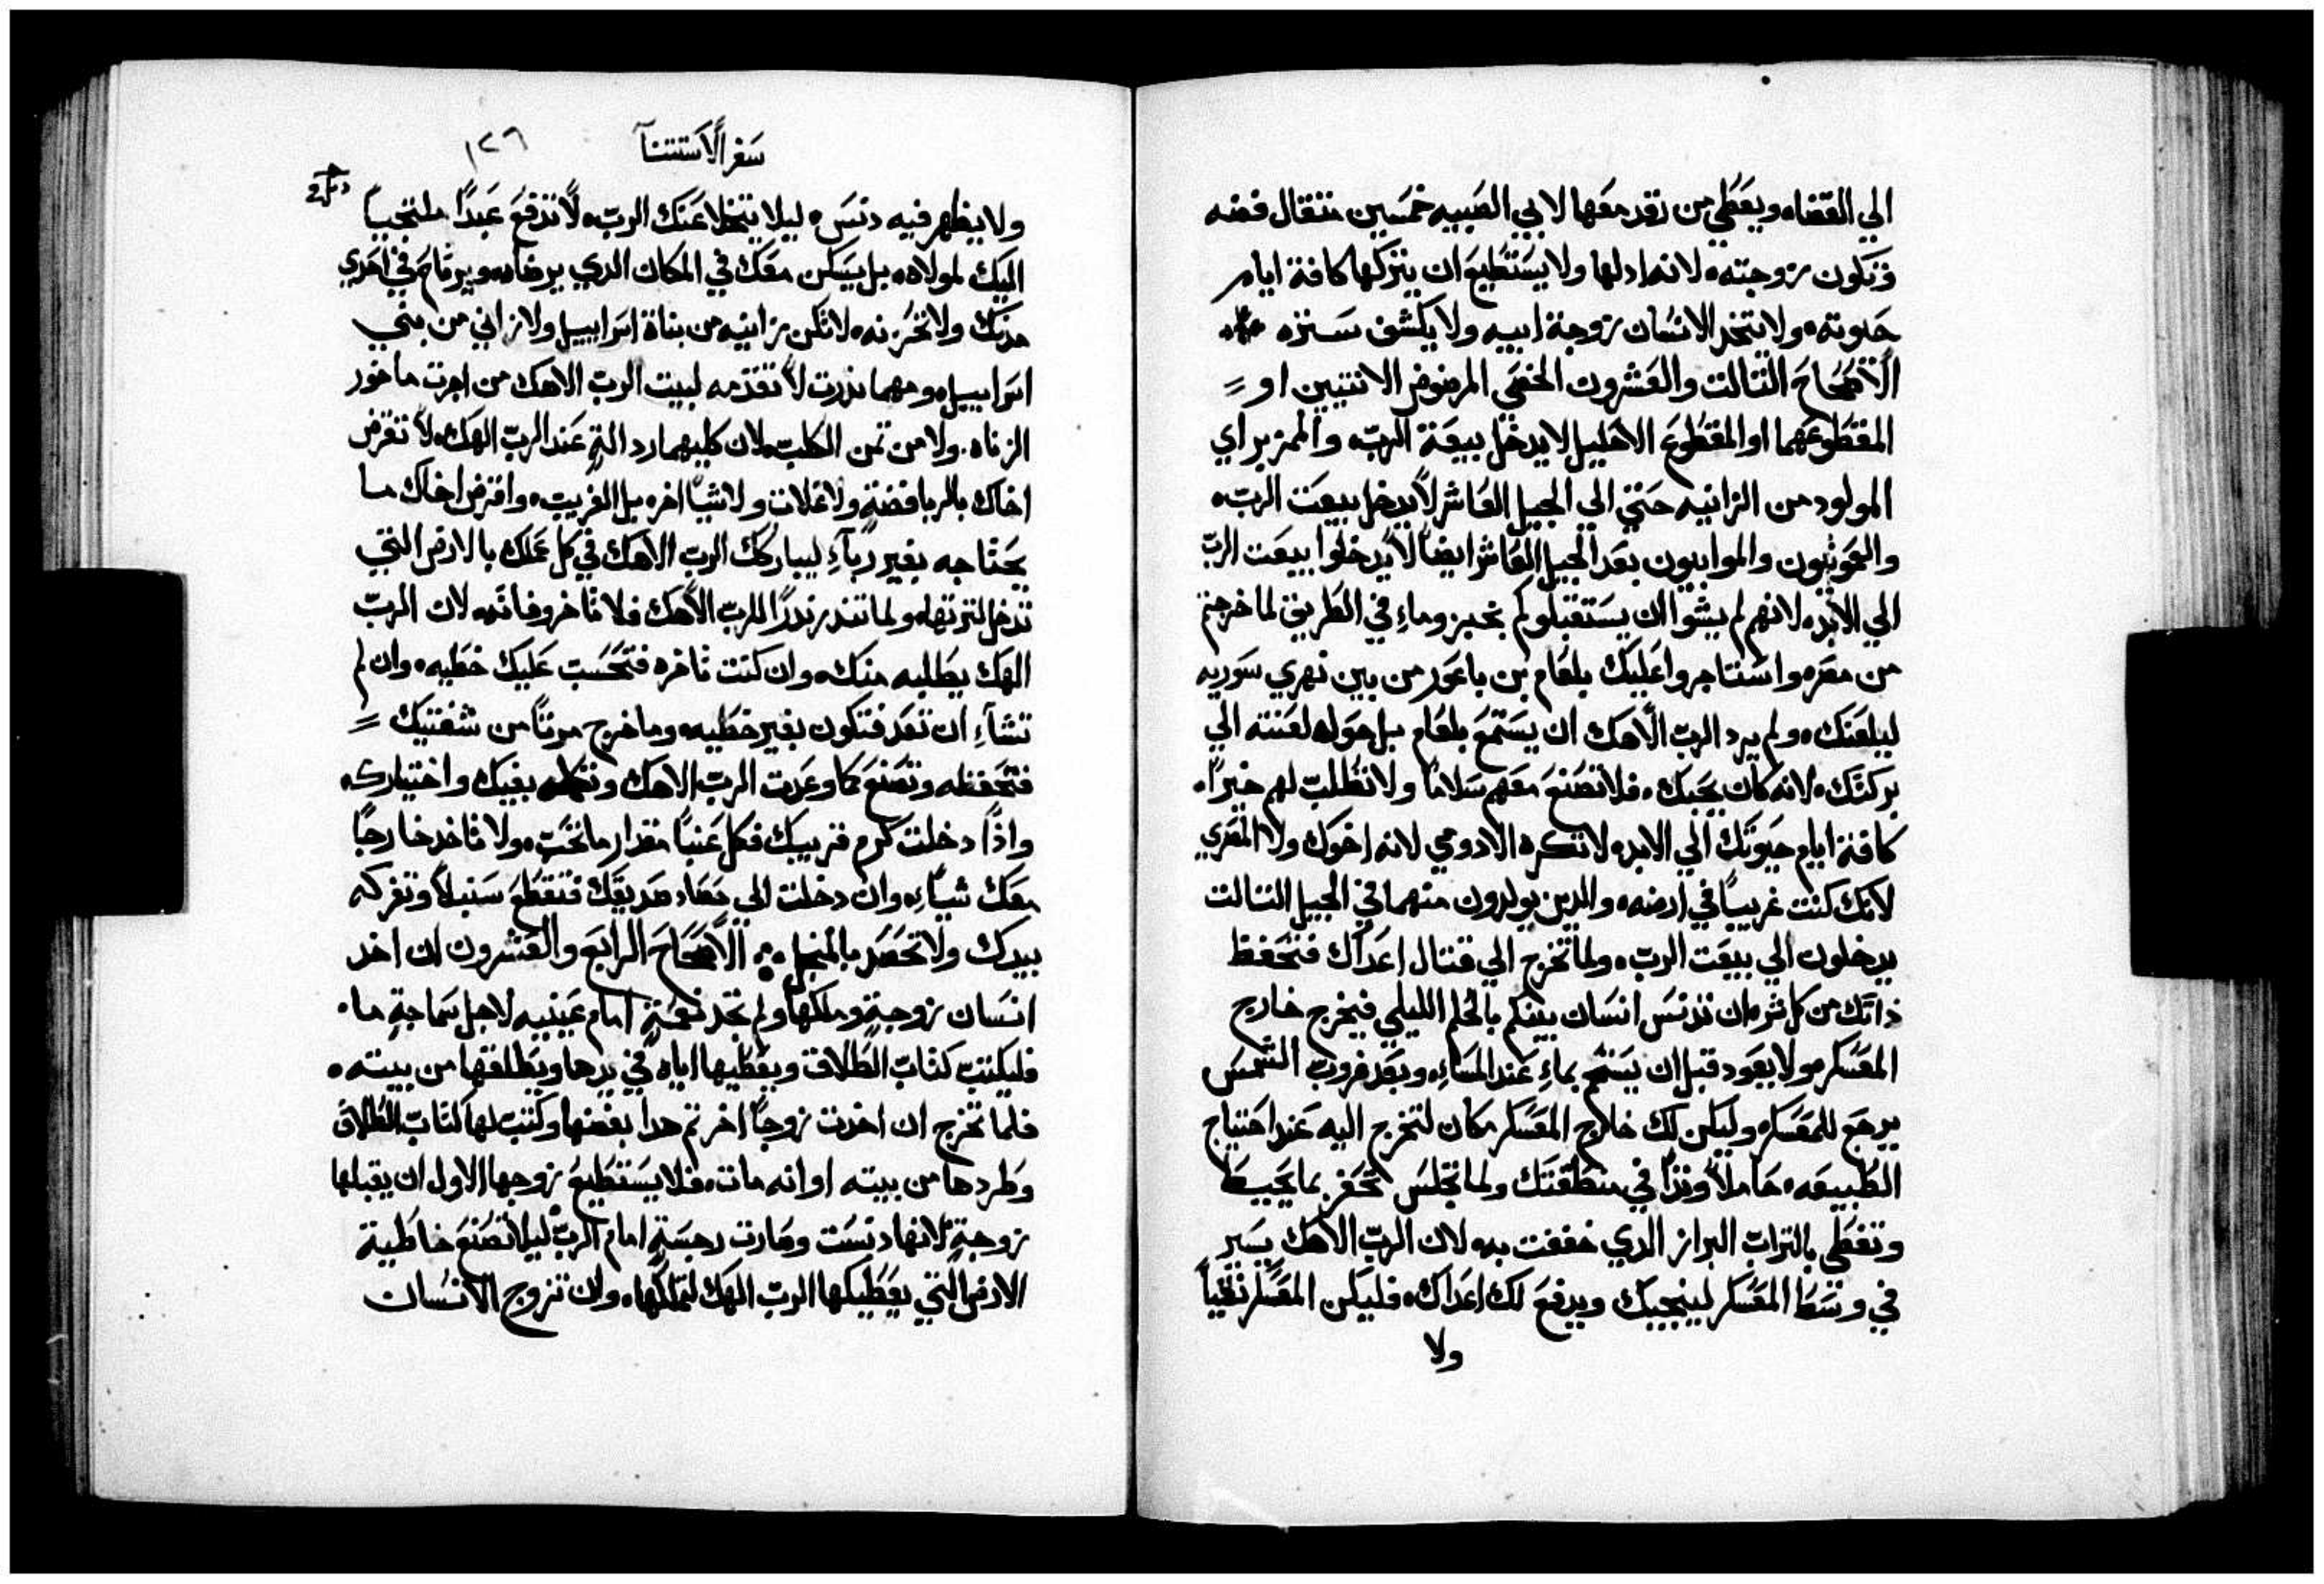 الي القضاه ويعطي من رقد معها لابي الصبيه خمسين متقال فضه
وتكون زوجته لانه ادلها ولا يستطيع ان يتركها كافة ايام
حيوته ولا يتخد الانسان زوجة ابيه ولا يكشف ستره
الاصحاح التالت والعشرون الخصي المرضوض الانتيين او
المقطوعهما او المقطوع الاحليل لا يدخل بيعة الرب والممزير اي
المولود من الزانيه حتي الي الجيل العاشر لا يدخل بيعت الرب
والعمونيون والموابيون بعد الجيل العاشر ايضا لا يدخلوا بيعت الرب
الي الابد لانهم لم يشوا ان يستقبلوكم بخبز وماء في الطريق لما خرجتم
من مصر واستاجروا عليك بلعام بن باعور من بين نهري سوريه
ليلعنك ولم يرد الرب الاهك ان يستمع بلعام بل حول لعنته الي
بركتك لانه كان يحبك فلا تصنع معهم سلاما ولا تطلب لهم خيرا
كافة ايام حيوتك الي الابد لا تكره الادومي لانه اخوك ولا المصري
لانك كنت غريبا في ارضه والدين يولدون منهما في الجيل التالت
يدخلون الي بيعت الرب ولما تخرج الي قتال اعداك فتحفظ
ذاتك من كل شر ان تدنس انسان بينكم بالحلم الليلي فيخرج خارج
المعسكر ولا يعود قبل ان يستحم بماء عند المساء وبعد غروب الشمس
يرجع للمعسكر وليكن لك خارج المعسكر مكان لتخرج اليه عند احتياج
الطبيعه حاملا وتدا في منطقتك ولما تجلس تحفر بما يحيط
وتغطي بالتراب البراز الدي خففت به لان الرب الاهك يسير
في وسط المعسكر لينجيك ويدفع لك اعداك فليكن المعسكر نقيا
ولا
سفر الاستتنا
١٢٦
ولا يظهر فيه دنس ليلا يتخلا عنك الرب لا تدفع عبدا ملتجيا
اليك لمولاه بل يسكن معك في المكان الدي يرضاه ويرتاح في احدي
مدنك ولا تحزنه لا تكن زانيه من بناة اسراييل ولا زاني من بني
اسراييل ومهما ندرت لا تقدمه لبيت الرب الاهك من اجرت ماخور
الزناه ولا من تمن الكلب لان كليهما رد التم عند الرب الهك لا تقرض
اخاك بالربا فضة ولا غلات ولا شيا اخر بل الغريب واقرض اخاك ما
يحتاجه بغير رباء ليباركك الرب الاهك في كل عملك بالارض التي
تدخل لترتها ولما تندر ندرا للرب الاهك فلا تاخر وفاته لان الرب
الهك يطلبه منك وان كنت تاخره فتحسب عليك خطيه وان لم
تشاء ان تعد فتكون بغير خطيه وما خرج مرتا من شفتيك
فتحفظه وتصنع كما وعدت الرب الاهك وتكلم بفيك واختيارك
واذا دخلت كرم قريبك فكل عنبا مقدار ما تحب ولا تاخد خارجا
معك شياء وان دخلت الي حصاد صديقك فتقطع سنبلا وتفركه
بيدك ولا تحصد بالمنجل الاصحاح الرابع والعشرون ان اخد
انسان زوجة وملكها ولم تجد نعمة امام عينيه لاجل سماجة ما
فليكتب كتاب الطلاق ويعطيها اياه في يدها ويطلقها من بيته
فلما تخرج ان اخدت زوجا اخر تم هدا بغضها وكتب لها كتاب الطلاق
وطردها من بيته او انه مات فلا يستطيع زوجها الاول ان يقبلها
زوجة لانها دنست وصارت رجسة امام الرب ليلا تصنع خاطية
الارض التي يعطيكها الرب الهك لتملكها وان تزوج الانسان